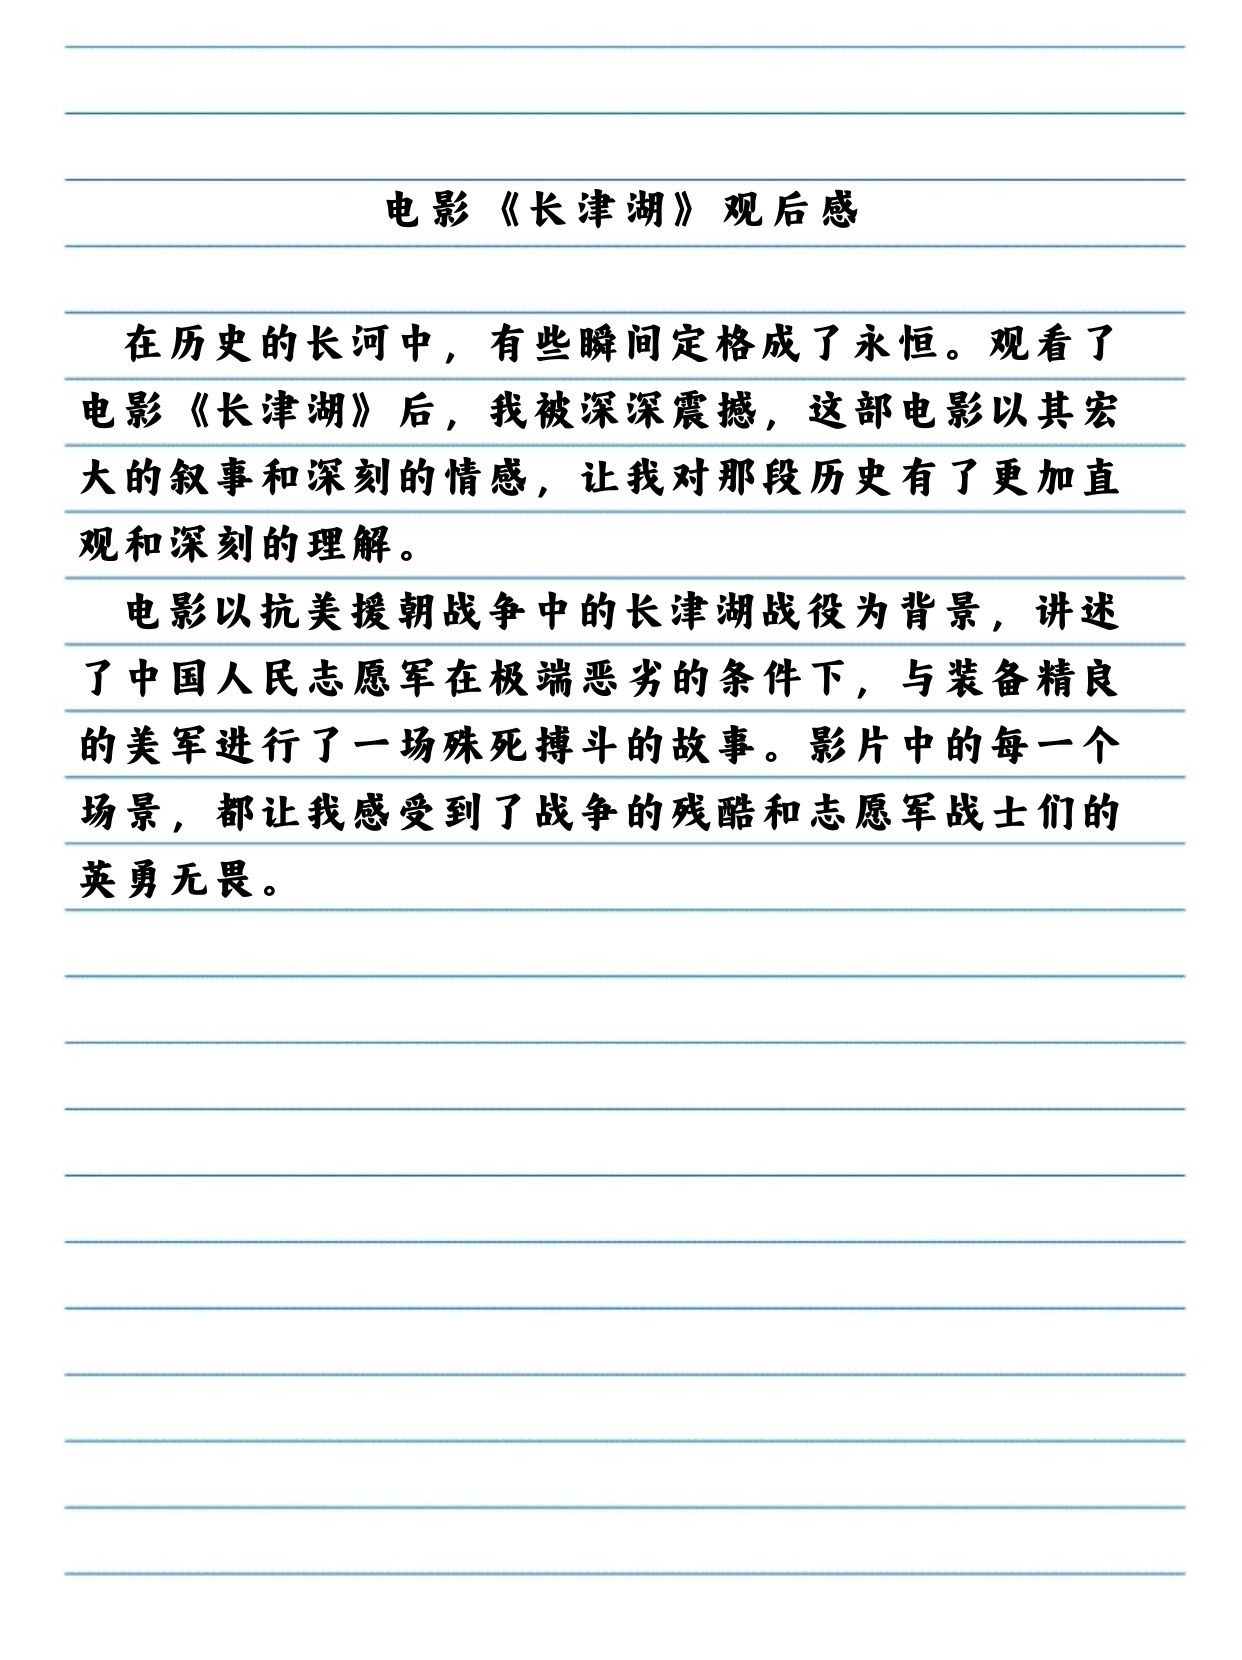 电影《长津湖》观后感
在历史的长河中，有些瞬间定格成了永恒。观看了
电影《长津湖》后，我被深深震撼，这部电影以其宏
大的叙事和深刻的情感，让我对那段历史有了更加直
观和深刻的理解。
电影以抗美援朝战争中的长津湖战役为背景，讲述
了中国人民志愿军在极端恶劣的条件下，与装备精良
的美军进行了一场殊死搏斗的故事。影片中的每一个
场景，都让我感受到了战争的残酷和志愿军战士们的
英勇无畏。